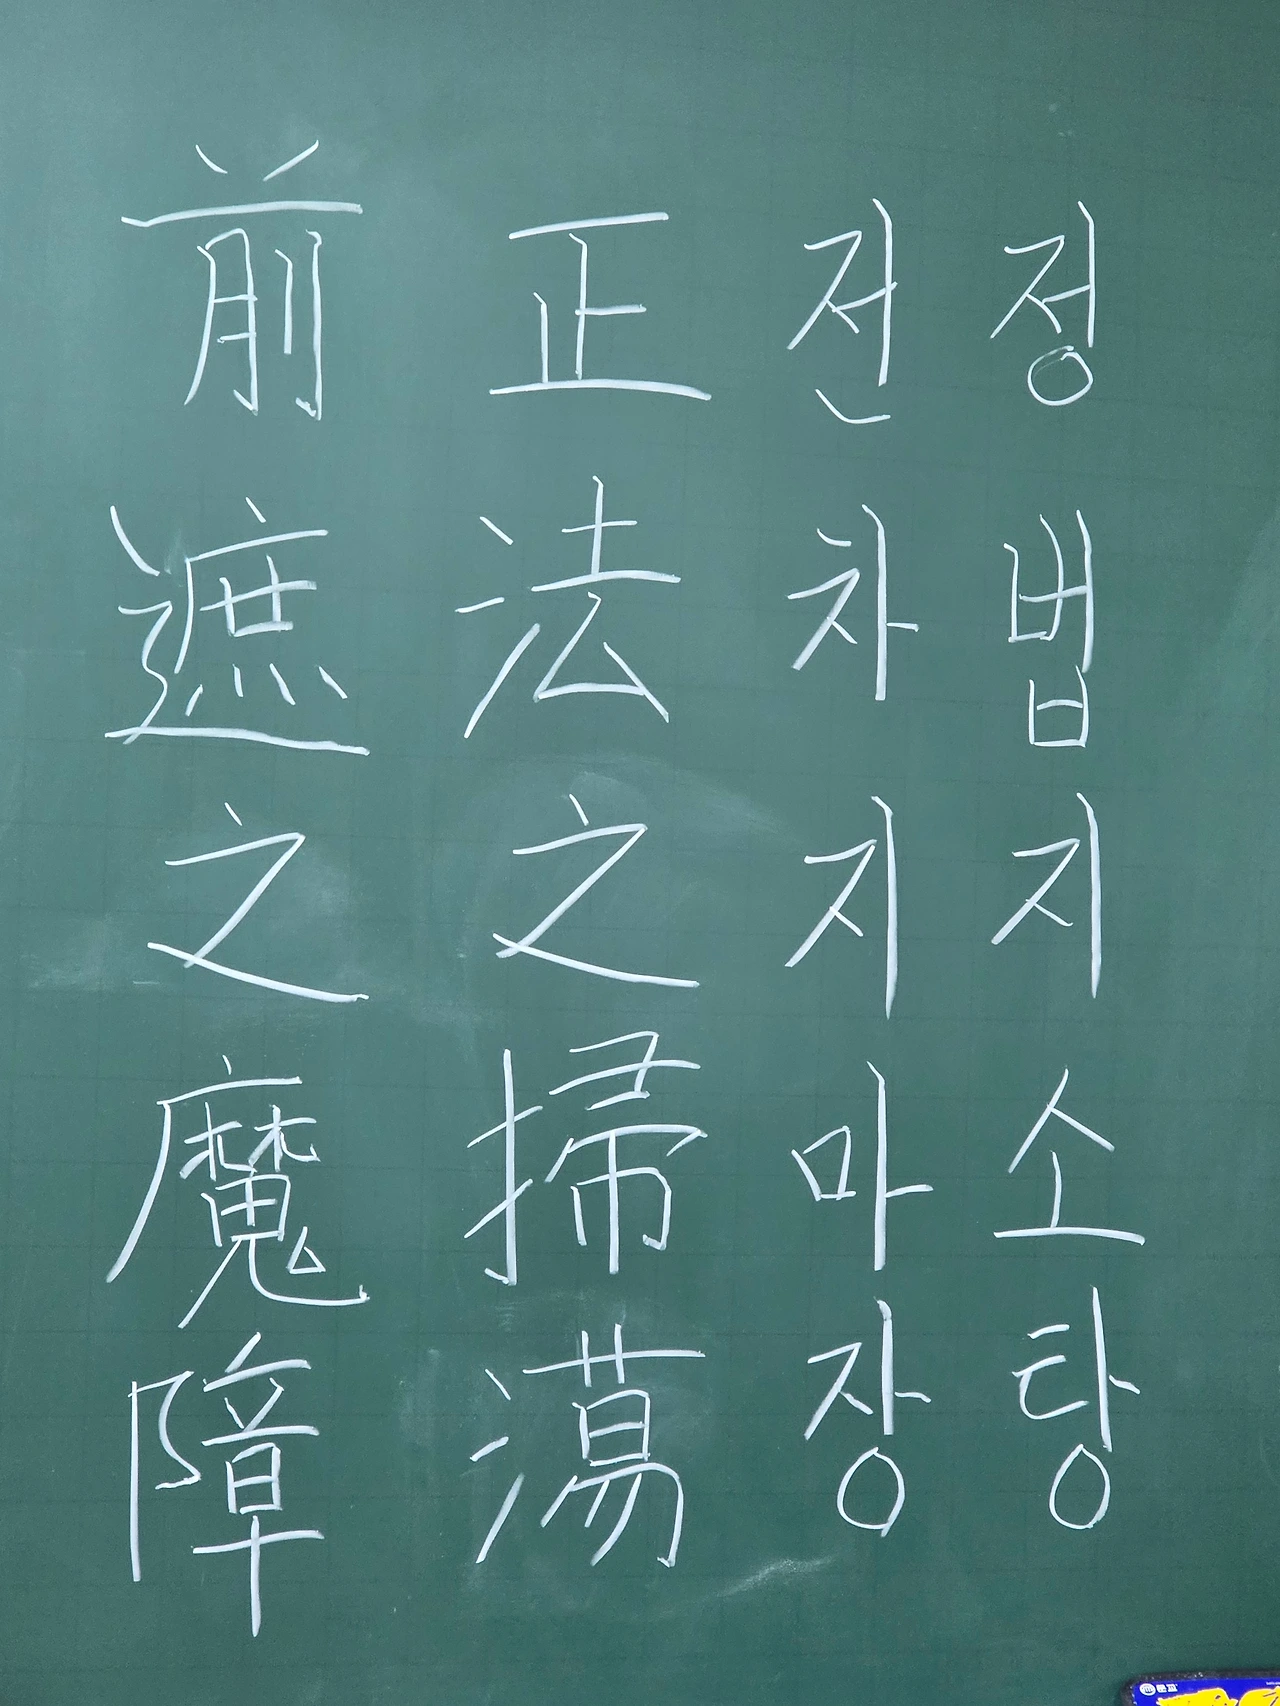 정법지소탕
전차지마장
正法之掃蕩
前遮之魔障